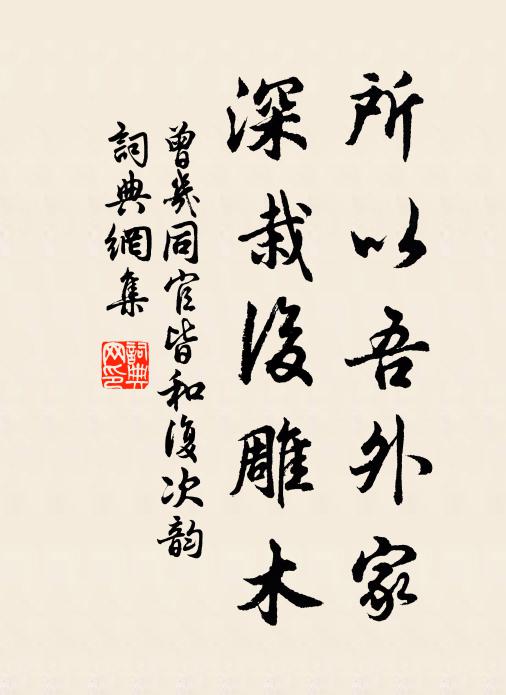 所以吾外家
深栽後雕木
曾幾同官皆和復次韵
詞典網集
詞典網印